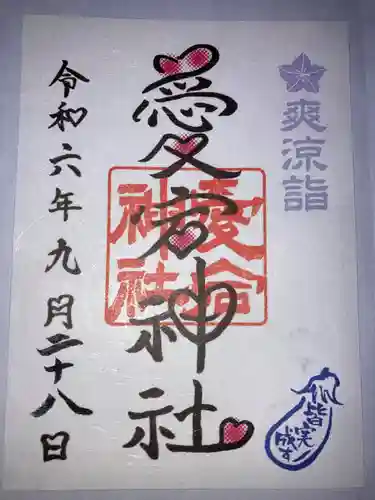 爽涼詣
愛宕神社
愛宕
神社
令和六年九月二十八日
皆笑
成す